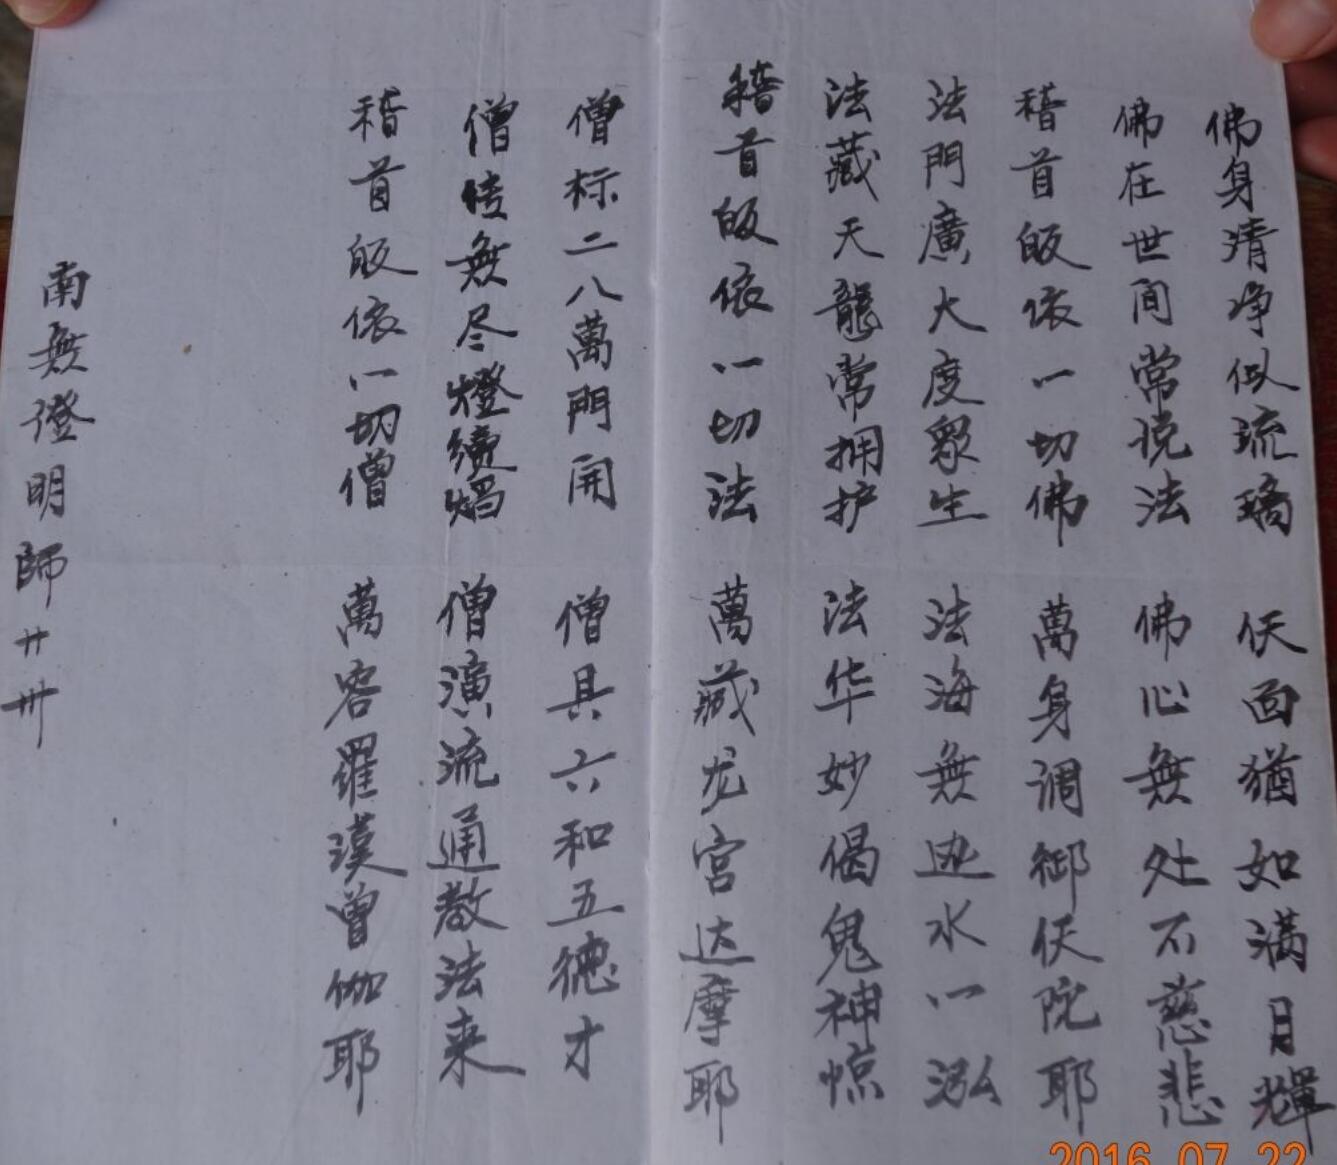 佛身清净似流璃　仸面猶如满月輝
佛在世间常说法　佛心無处不慈悲
稽首皈依一切佛　萬身调御仸陀耶
法門廣大度眾生　法海無边水一泓
法藏天龍常拥护　法华妙偈鬼神惊
稽首皈依一切法　萬藏龙宫达摩耶
僧标二八萬門開　僧具六和五德才
僧传無尽燈續焰　僧演流通教法来
稽首皈依一切僧　萬容羅漢曾伽耶
南無證明師廿卅
2016 07 22